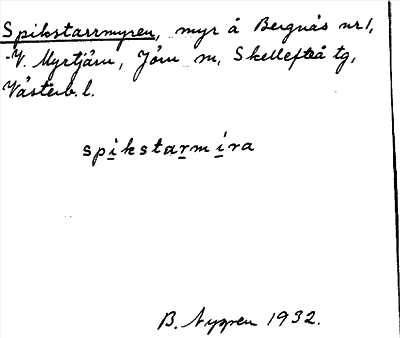 Spikstarrmyren, myr å Bergnäs nr 1,
V. Myrtjärn, Jörn sn, Skellefteå tg,
Västerb. l.
spikstarmira
B. Nygren 1932.